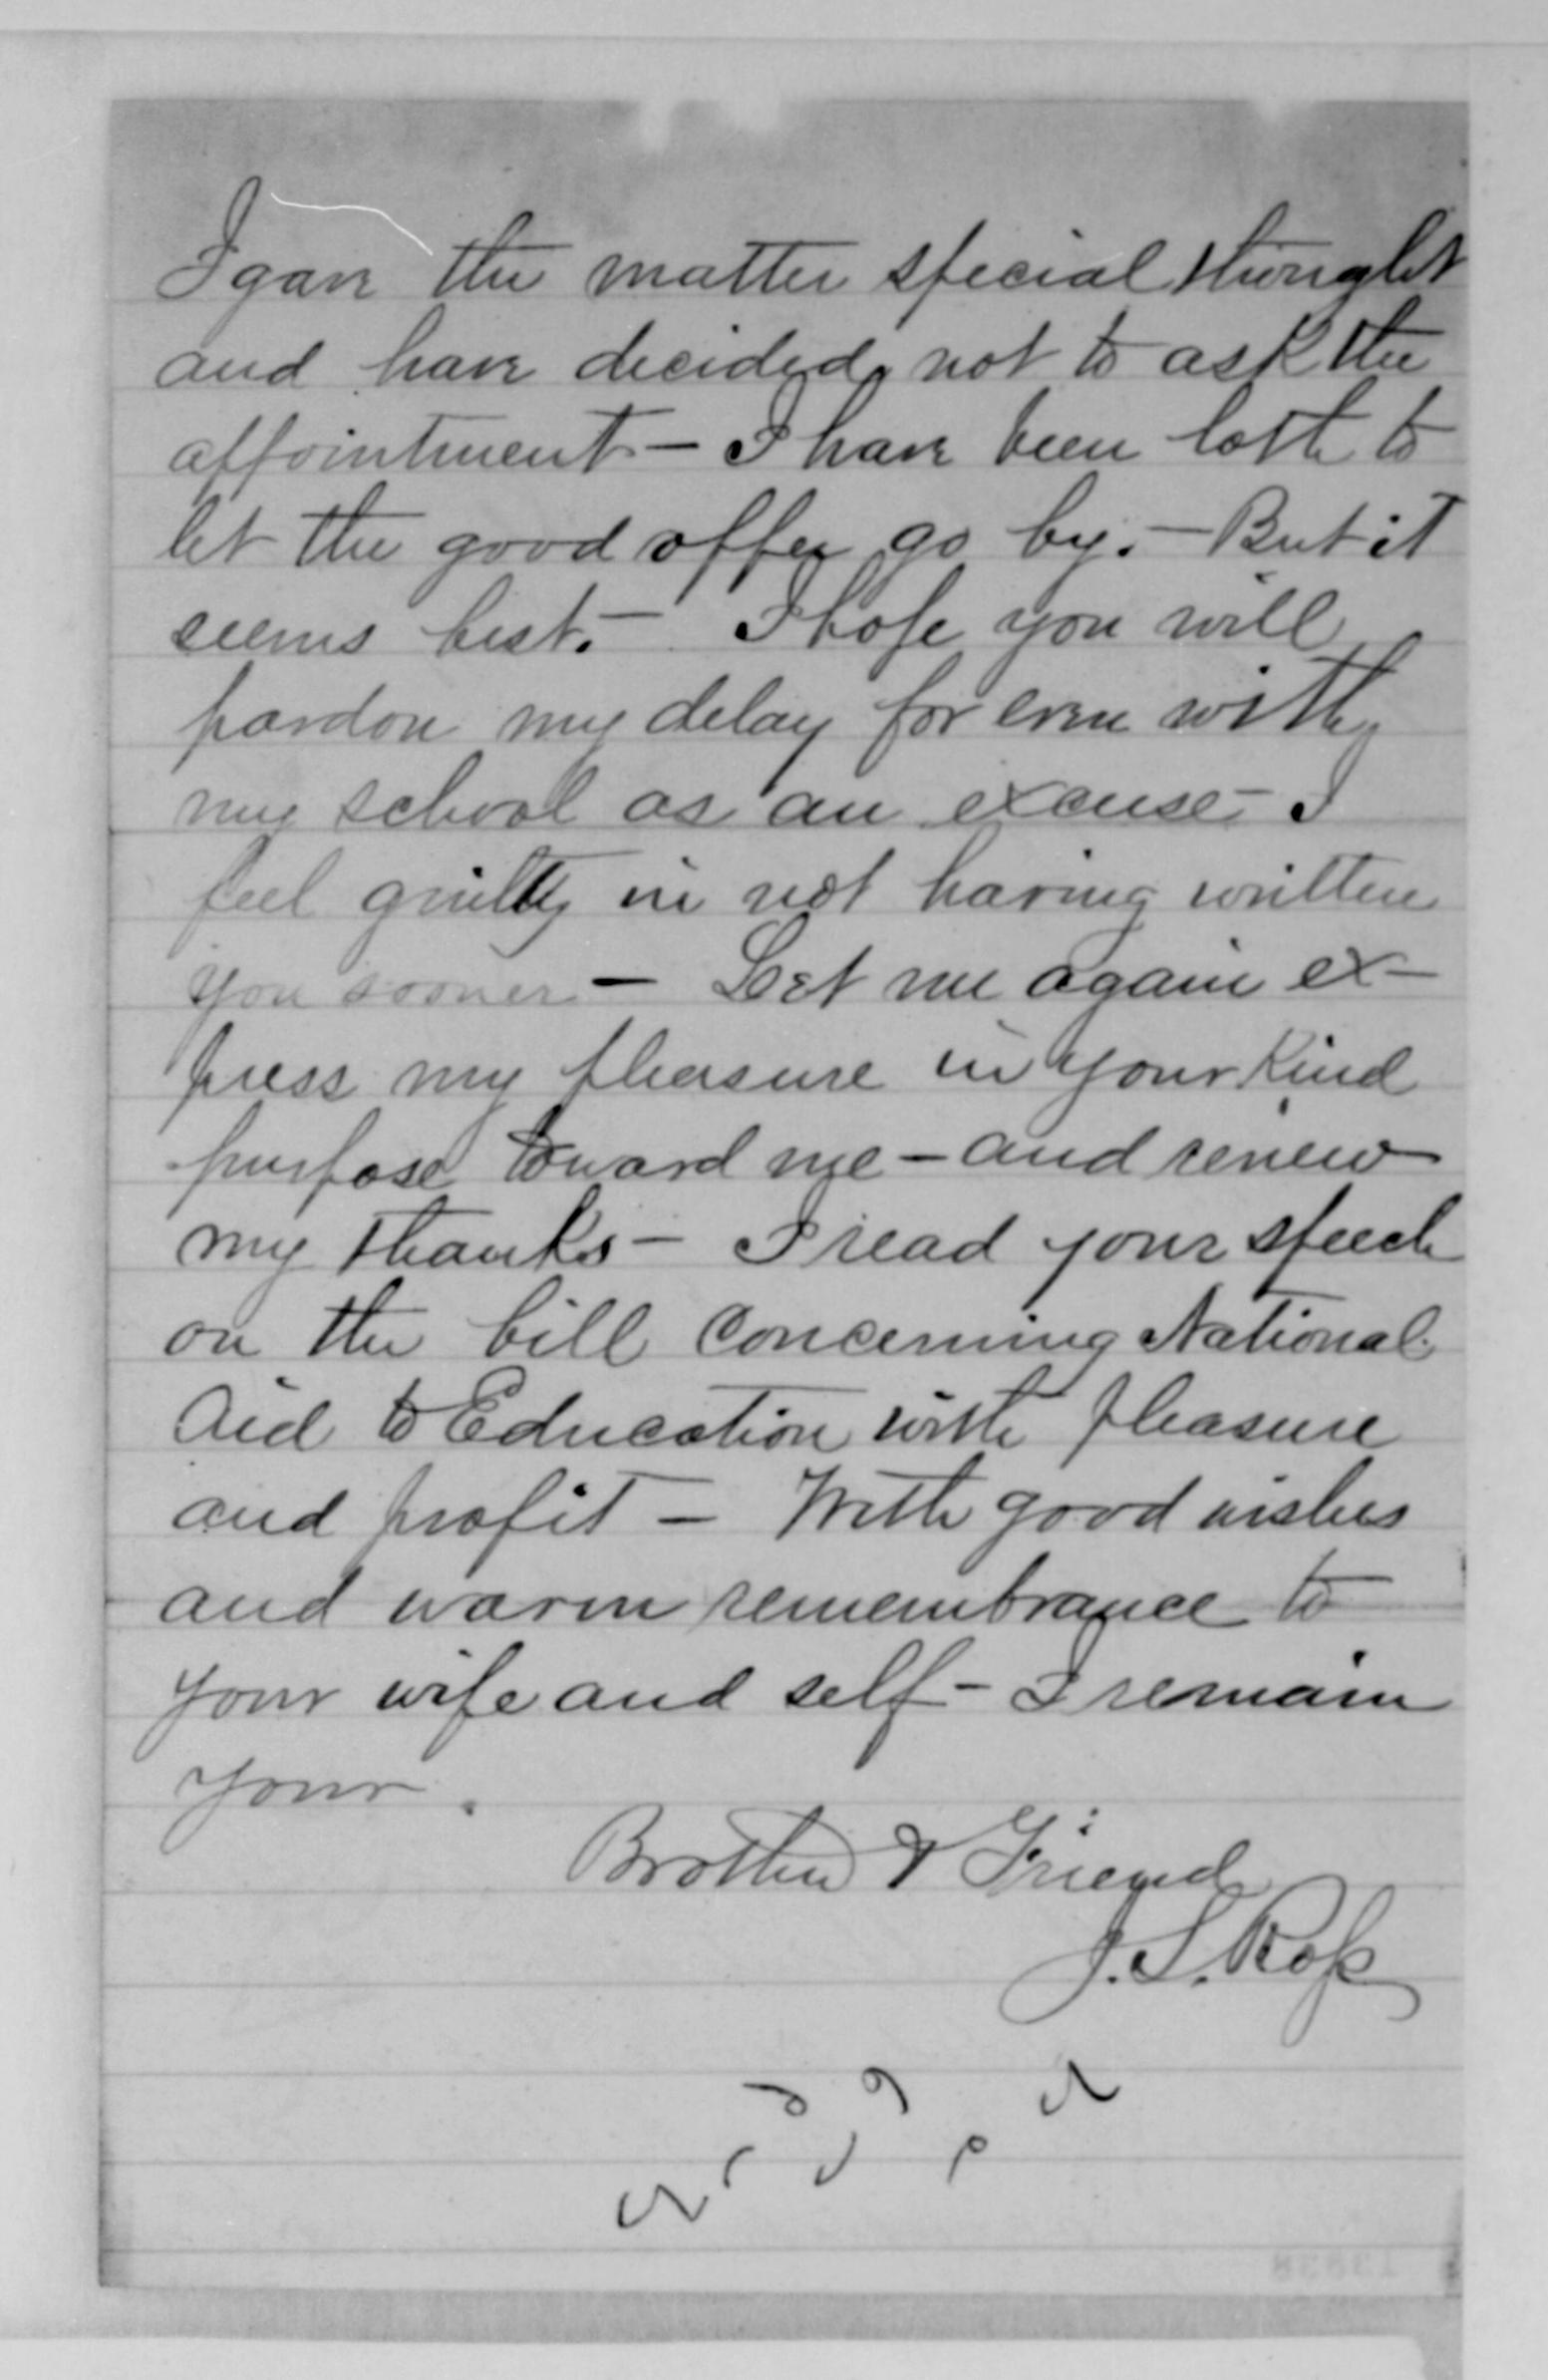 I gave the matter special thought
and have decided not to ask the
appointment – I have been loth to
let the good offer go by. – But it
seems best. – I hope you will
pardon my delay for even with
my school as an excuse – I
feel guilty in not having written
you sooner – Let me again ex-
press my pleasure in your kind
purpose toward me – and renew
my thanks – I read your speech
on the bill concerning National
Aid to Education with pleasure
and profit – With good wishes
and warm remembrance to
your wife and self – I remain
your
Brother & Friend
J. S. Ross